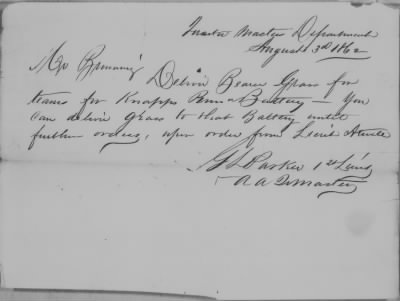 Quarter Master Department
August 3d 1862
Mr Browning
Deliver Bearer Grass for
teams for Knapps Penn Battery — You
can deliver grass to that Battery until
further orders, upon order from Lieut
G L Parker 1st Lieut
A A Qr Master